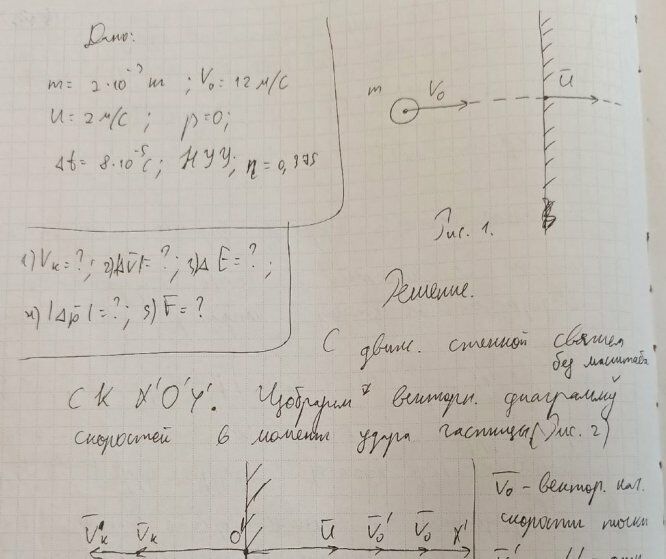 Дано:
m = 2·10⁻³ m ; V₀ = 12 м/с
U = 2 м/с ; β=0;
Δt = 8·10⁻⁵ с; НУУ; η = 0,375
1) Vк = ?; 2) |ΔV̄| = ?; 3) ΔE = ?;
4) |Δp̄| = ?; 5) F̄ = ?
m V̄₀ Ū
Рис. 1.
Решение.
С движ. стенкой свяжем
без масштаба
СК X'O'Y'. Изобразим * векторн. диаграмму
скоростей в момент удара частицы (Рис. 2)
V̄'к V̄к O' Ū V̄₀' V̄₀ X'
V̄₀ - вектор. нач.
скорости точки